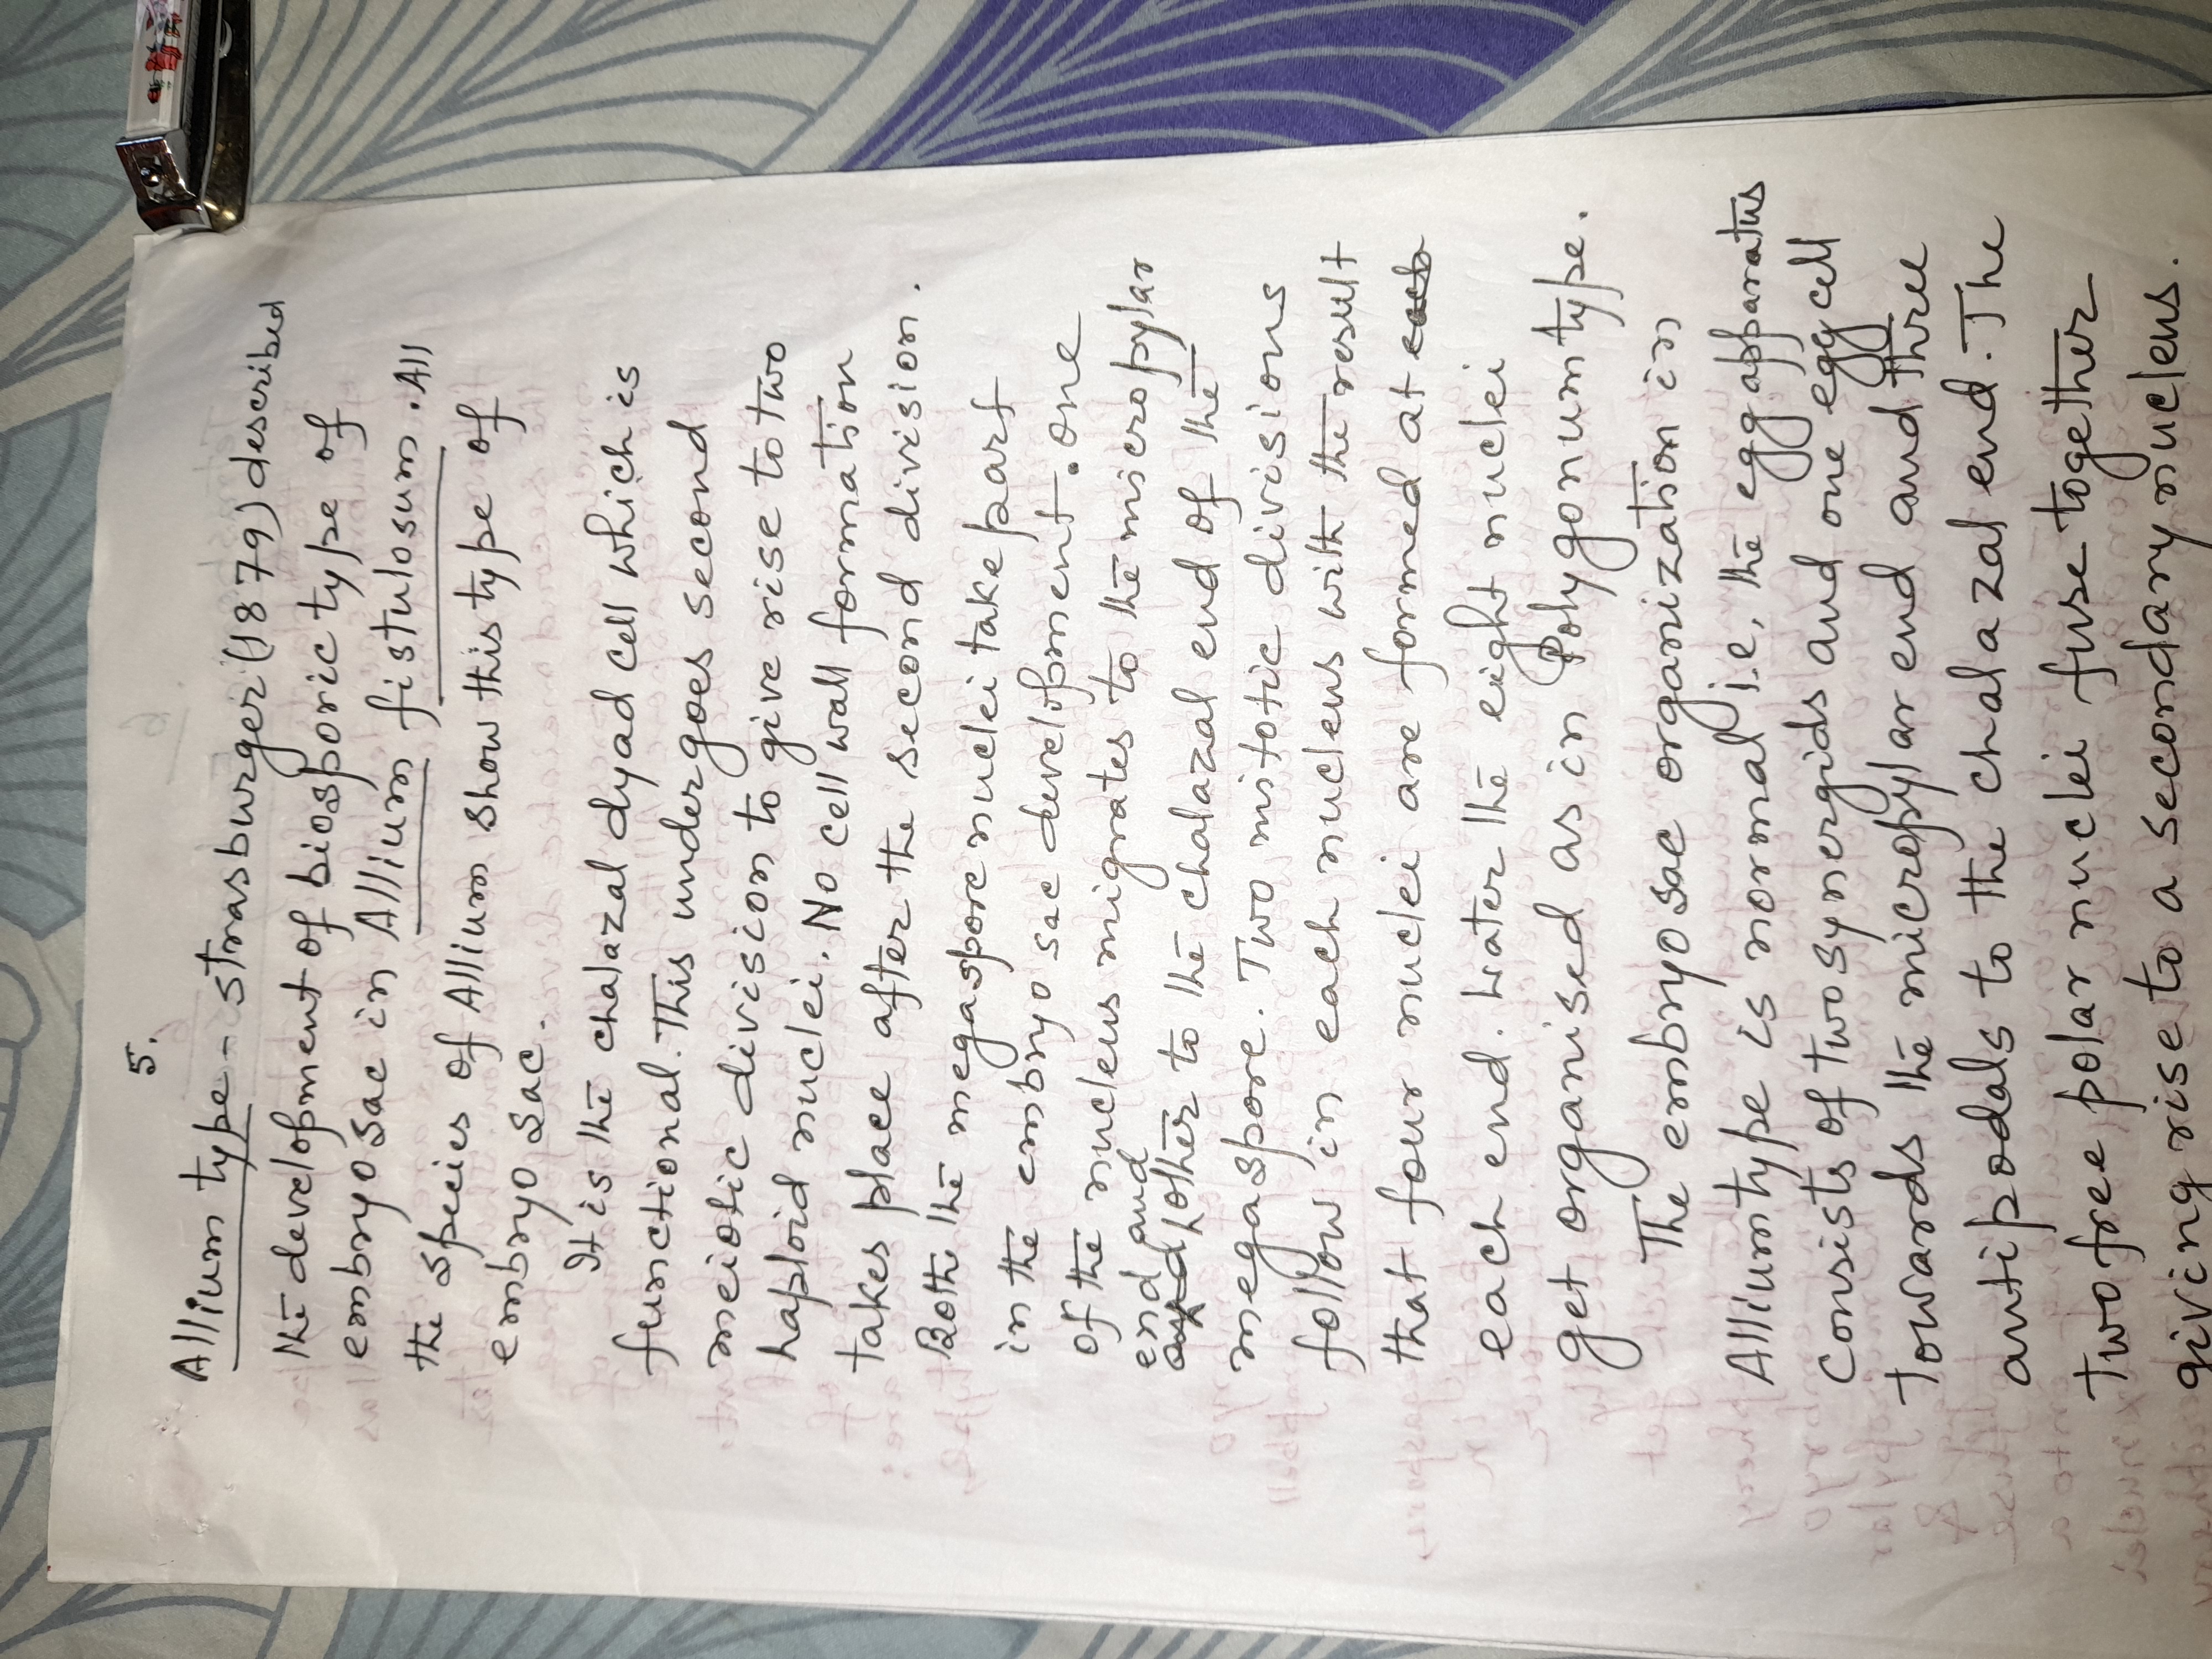 5.
Allium type - strasburger (1879) described
the development of biosporic type of
embryo sac in Allium fistulosum. All
the species of Allium show this type of
embryo sac.
It is the chalazal dyad cell which is
functional. This undergoes second
meiotic division to give rise to two
haploid nuclei. No cell wall formation
takes place after the second division.
Both the megaspore nuclei take part
in the embryo sac development. One
of the nucleus migrates to the micropylar
end and
other to the chalazal end of the
megaspore. Two mitotic divisions
follow in each nucleus with the result
that four nuclei are formed at each
each end. Later the eight nuclei
get organised as in Polygonum type.
The embryo sac organization in
Allium type is normal i.e, the egg apparatus
consists of two synergids and one egg cell
towards the micropylar end and three
antipodals to the chalazal end. The
two free polar nuclei fuse together
giving rise to a secondary nucleus.